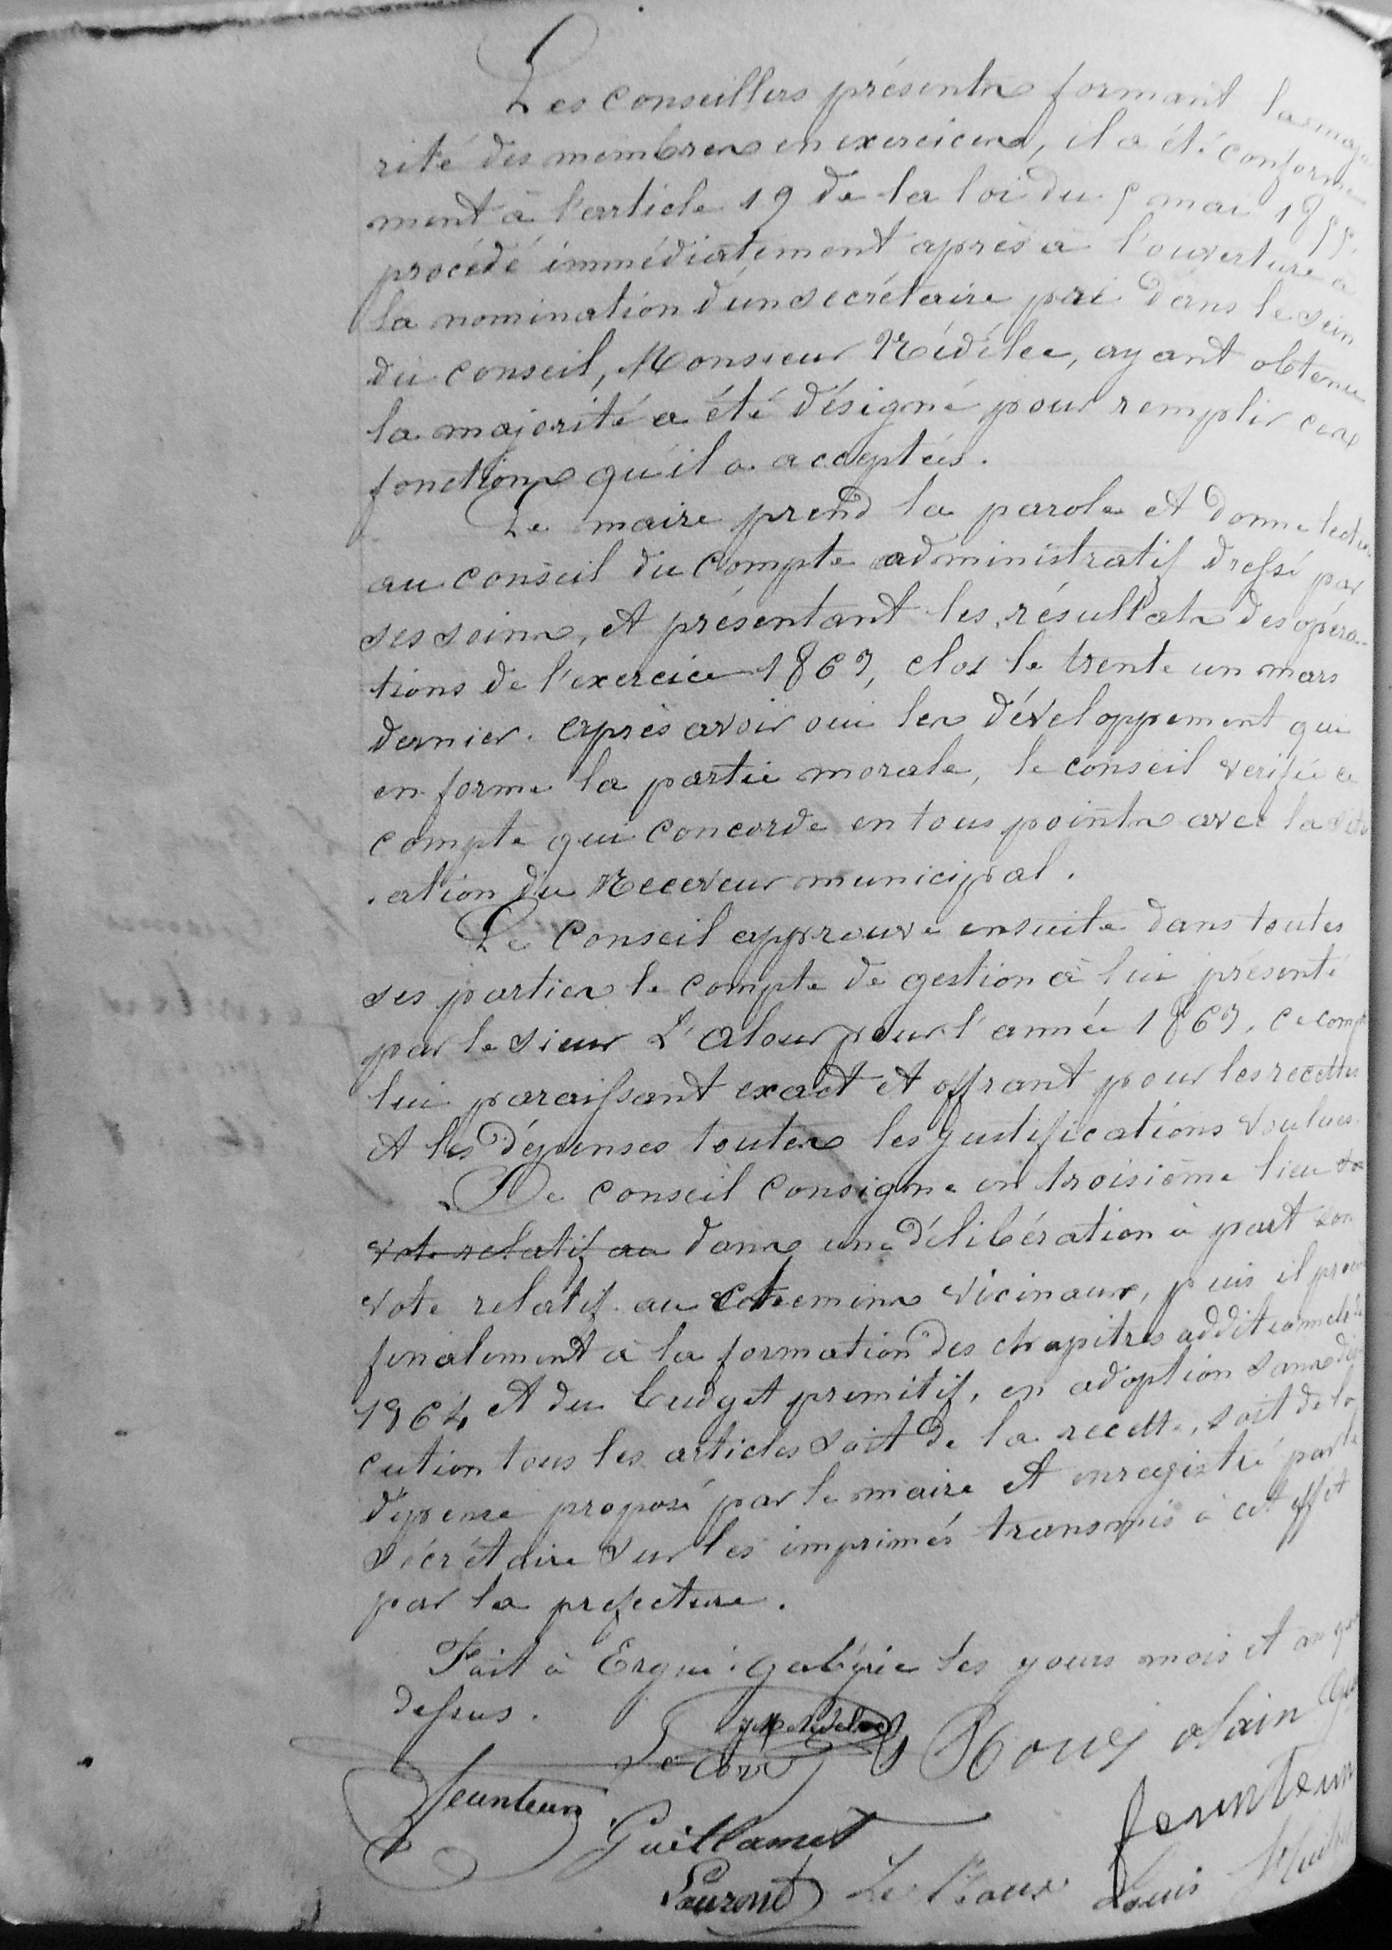 Les conseillers présents formant la majo
rité des membres en exercices, il a été conformé
ment à l'article 19 de la loi du 5 mai 1855.
procédé immédiatement après à l'ouverture à
la nomination d'un secrétaire pri dans le sein
du conseil, Monsieur Nédélec, ayant obtenu
la majorité a été désigné pour remplir ces
fonctions qu'il a acceptées.
Le maire prend la parole et donne lectu
au conseil du compte administratif dressé par
ses soins, et présentant les résultats des opéra-
tions de l'exercice 1863, clos le trente un mars
dernier. après avoir oui les développement qui
en forme la partie morale, le conseil verifie ce
compte qui concorde en tous points avec la situ
ation du Receveur municipal.
Le Conseil approuve ensuite dans toutes
ses parties le compte de gestion à lui présenté
par le sieur L'alour pour l'année 1863. ce comp
lui paraissant exact et offrant pour les recettes
et les dépenses toutes les justifications voulues.
Le conseil consigne en troisième lieu
vote relatif au dans une délibération à part son
vote relatif au chemins vicinaux, puis il pro
finalement à la formation des chapitres additionnels
1864 et du budget primitif, en adoption sans dis
cution tous les articles soit de la recette, soit de la
dépense proposé par le maire et enregistré par le
sécrétaire sur les imprimés transmis à cet effet
par la prefecture.
Fait à Ergué-gabéric les jours mois et an que
dessus.
Le Corre Rouz alain
feunteun feunteun
Guillamet
Laurent Le Roux Louis